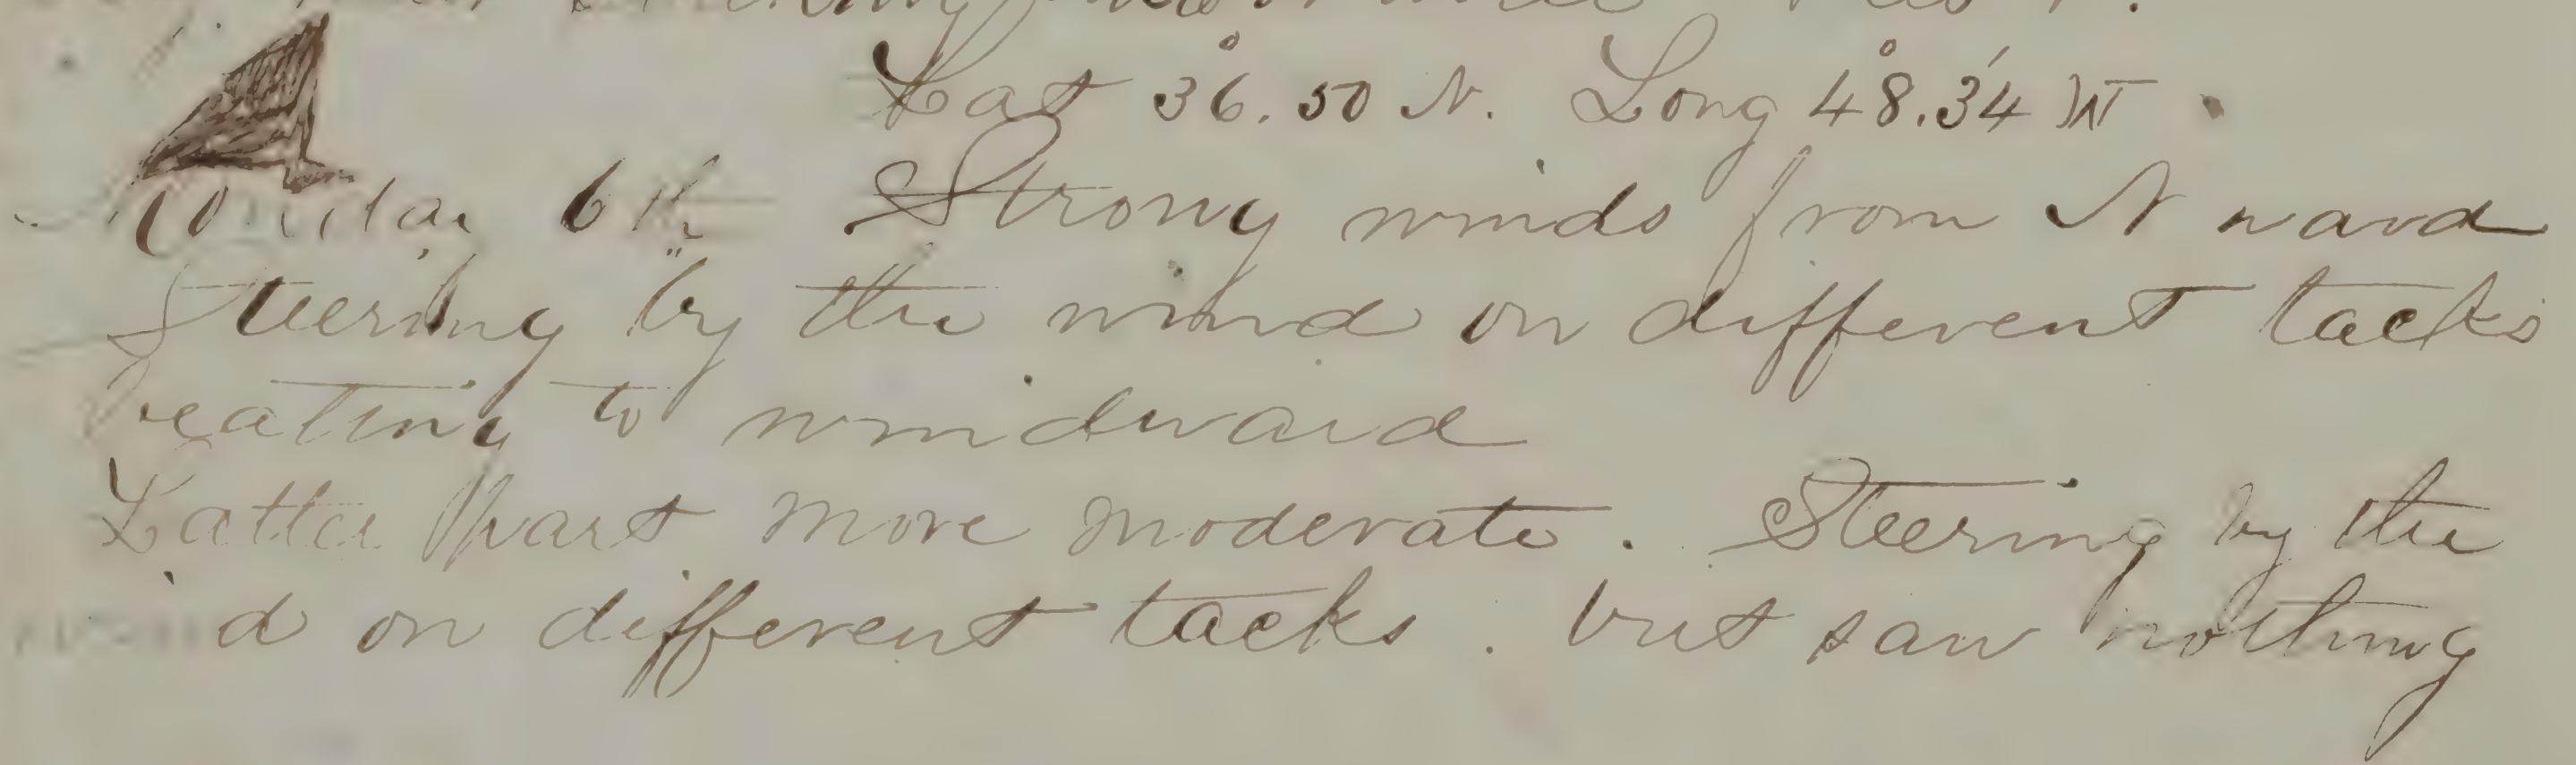 Lat 36°.50 N. Long 48°.34' W.
Monday 6th Strong winds from N ward
Steering by the wind on different tacks
beating to windward
Latter part more moderate. Steering by the
wind on different tacks. but saw nothing